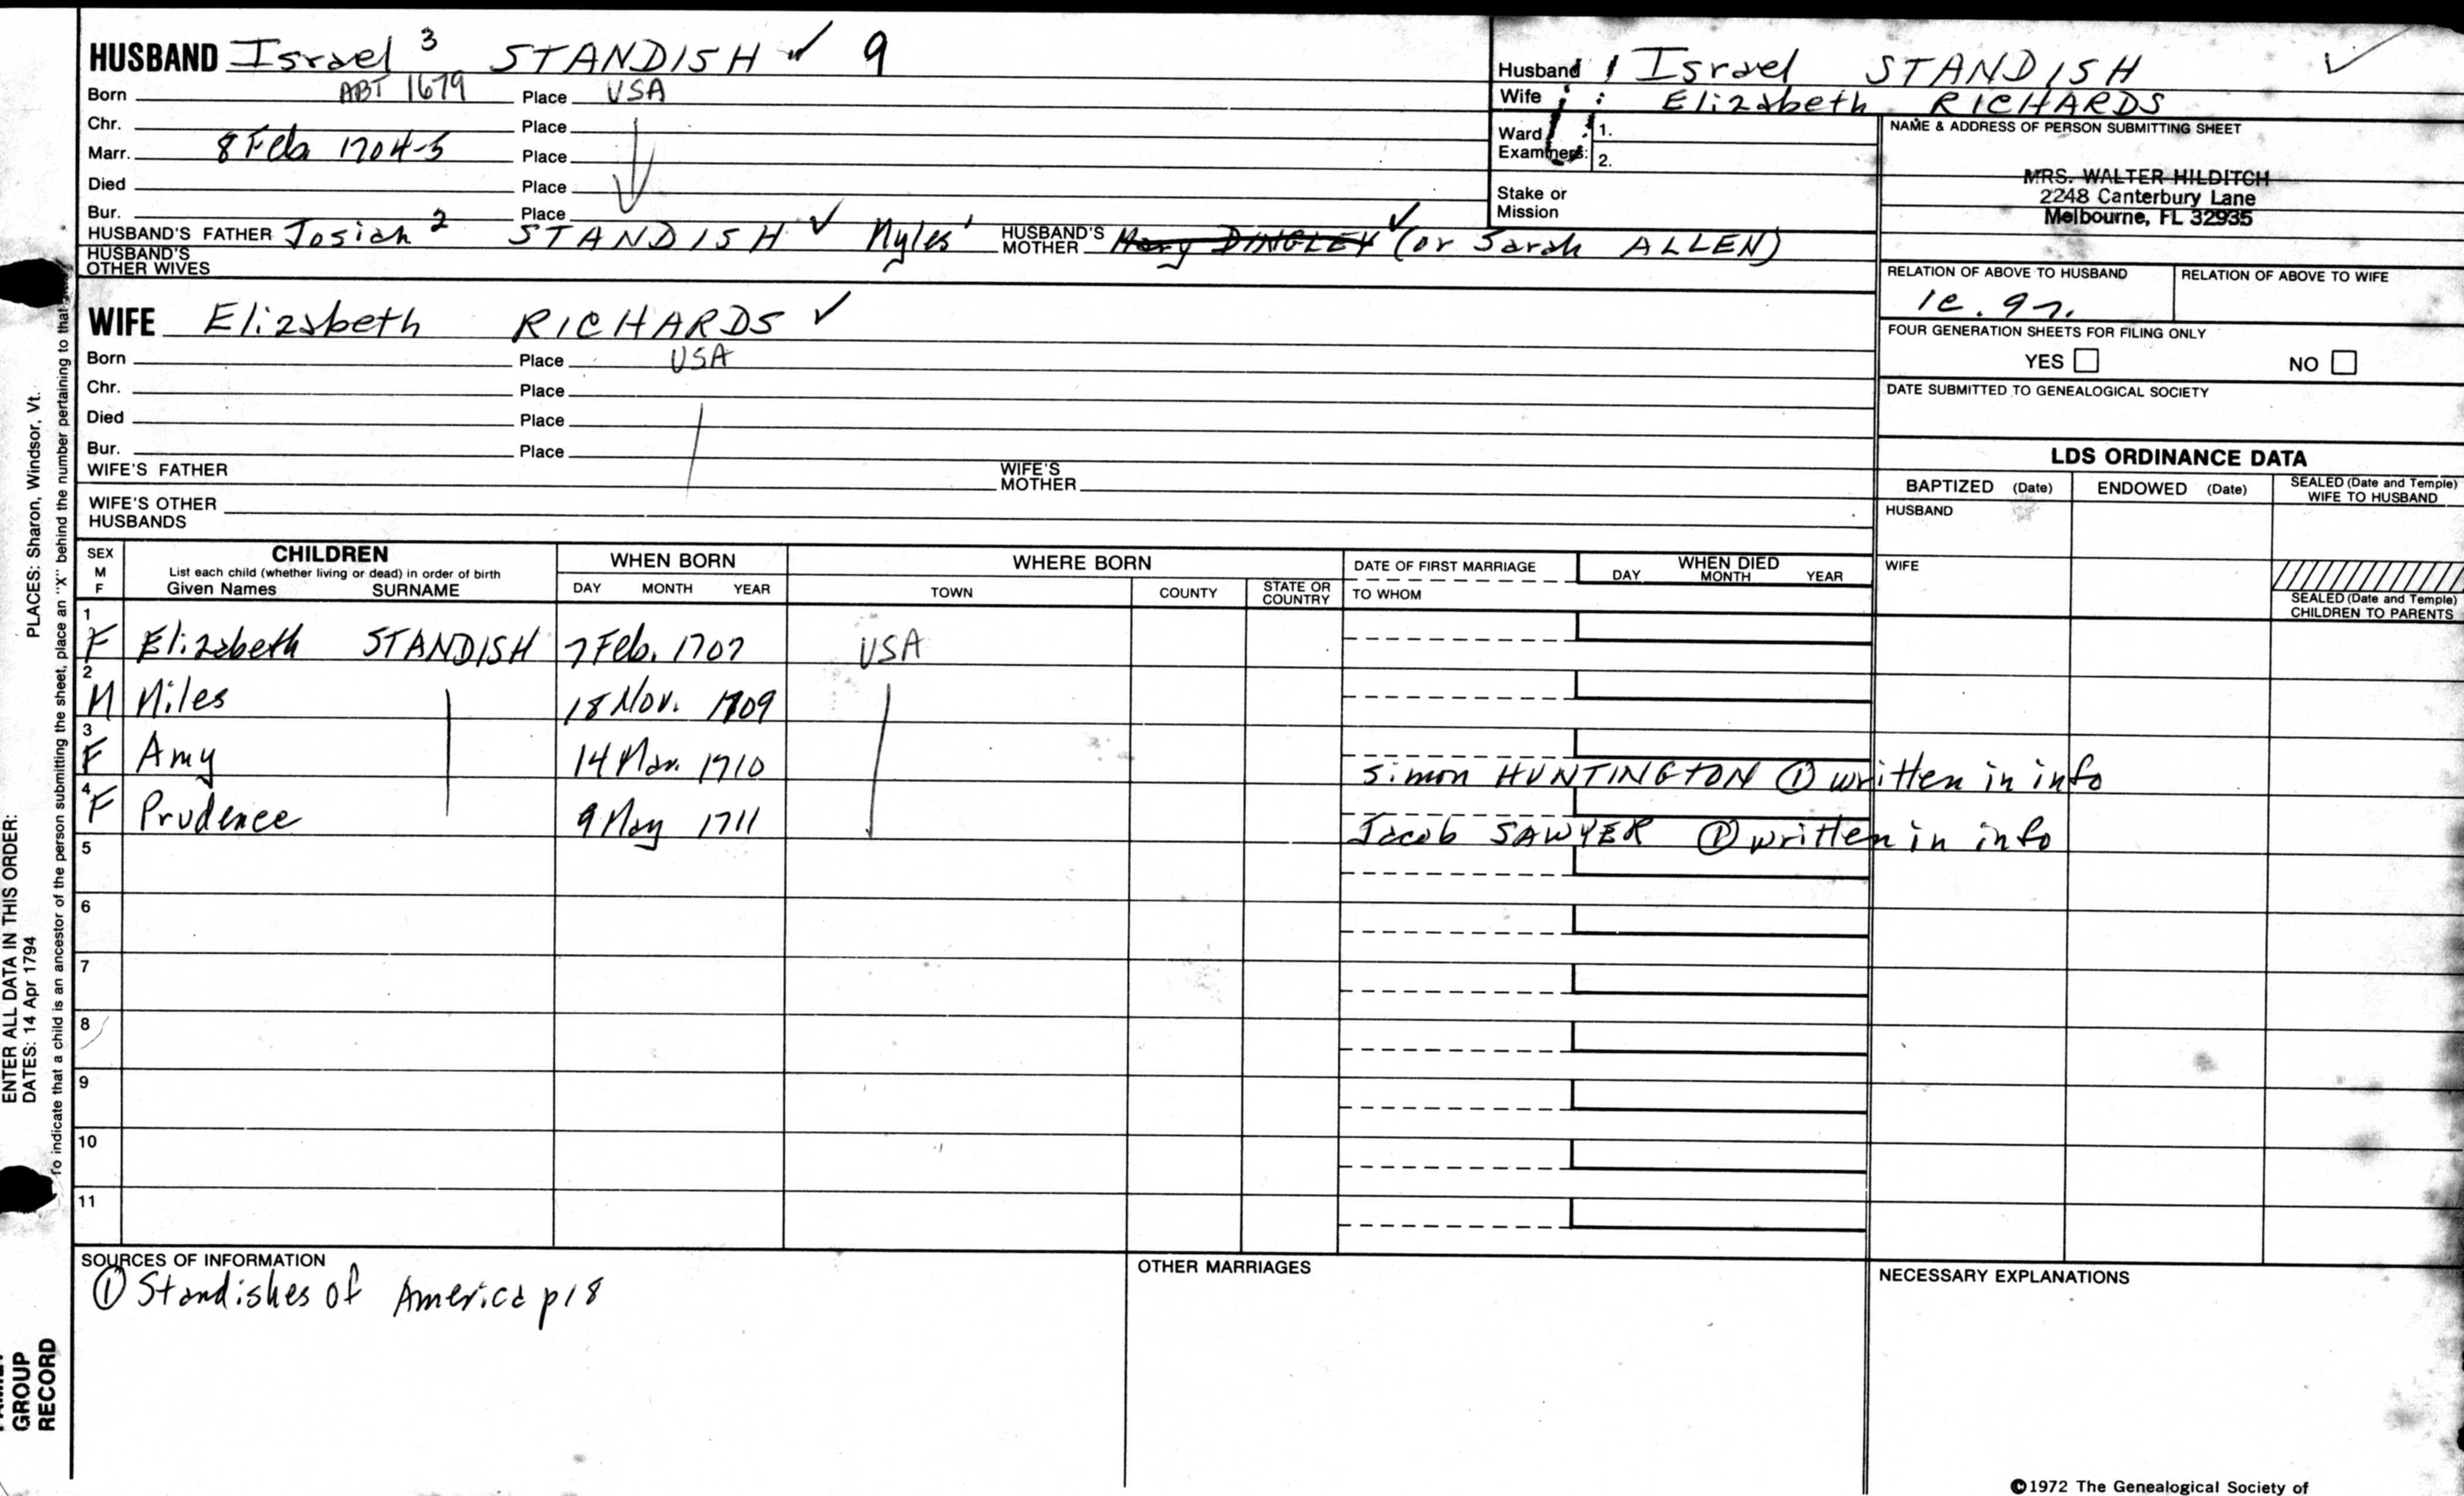 HUSBAND Israel 3 STANDISH ✓ 9
Born ABT 1679 Place USA
Chr. Place
Marr. 8 Feb 1704-5 Place
Died Place
Bur. Place
HUSBAND'S FATHER Josiah 2 STANDISH ✓ Myles 1 HUSBAND'S MOTHER Mary DINGLEY ✓ (or Sarah ALLEN)
HUSBAND'S OTHER WIVES
Husband Israel STANDISH ✓
Wife : Elizabeth RICHARDS
Ward 1.
Examiners: 2.
Stake or
Mission
NAME & ADDRESS OF PERSON SUBMITTING SHEET
MRS. WALTER HILDITCH
2248 Canterbury Lane
Melbourne, FL 32935
RELATION OF ABOVE TO HUSBAND RELATION OF ABOVE TO WIFE
FOUR GENERATION SHEETS FOR FILING ONLY
YES NO
DATE SUBMITTED TO GENEALOGICAL SOCIETY
WIFE Elizabeth RICHARDS ✓
Born Place USA
Chr. Place
Died Place
Bur. Place
WIFE'S FATHER WIFE'S MOTHER
WIFE'S OTHER
HUSBANDS
LDS ORDINANCE DATA
BAPTIZED (Date) ENDOWED (Date) SEALED (Date and Temple) WIFE TO HUSBAND
HUSBAND
WIFE
SEALED (Date and Temple)
CHILDREN TO PARENTS
SEX M F CHILDREN List each child (whether living or dead) in order of birth Given Names SURNAME
WHEN BORN DAY MONTH YEAR
WHERE BORN TOWN COUNTY STATE OR COUNTRY
DATE OF FIRST MARRIAGE TO WHOM
WHEN DIED DAY MONTH YEAR
1 F Elizabeth STANDISH 7 Feb. 1707 USA
2 M Miles 18 Nov. 1709
3 F Amy 14 Mar. 1710 Simon HUNTINGTON ① written in info
4 F Prudence 9 May 1711 Jacob SAWYER ① written in info
5
6
7
8
9
10
11
SOURCES OF INFORMATION
① Standishes of America p18
OTHER MARRIAGES
NECESSARY EXPLANATIONS
©1972 The Genealogical Society of
ENTER ALL DATA IN THIS ORDER:
DATES: 14 Apr 1794 PLACES: Sharon, Windsor, Vt.
To indicate that a child is an ancestor of the person submitting the sheet, place an "X" behind the number pertaining to that
GROUP
RECORD